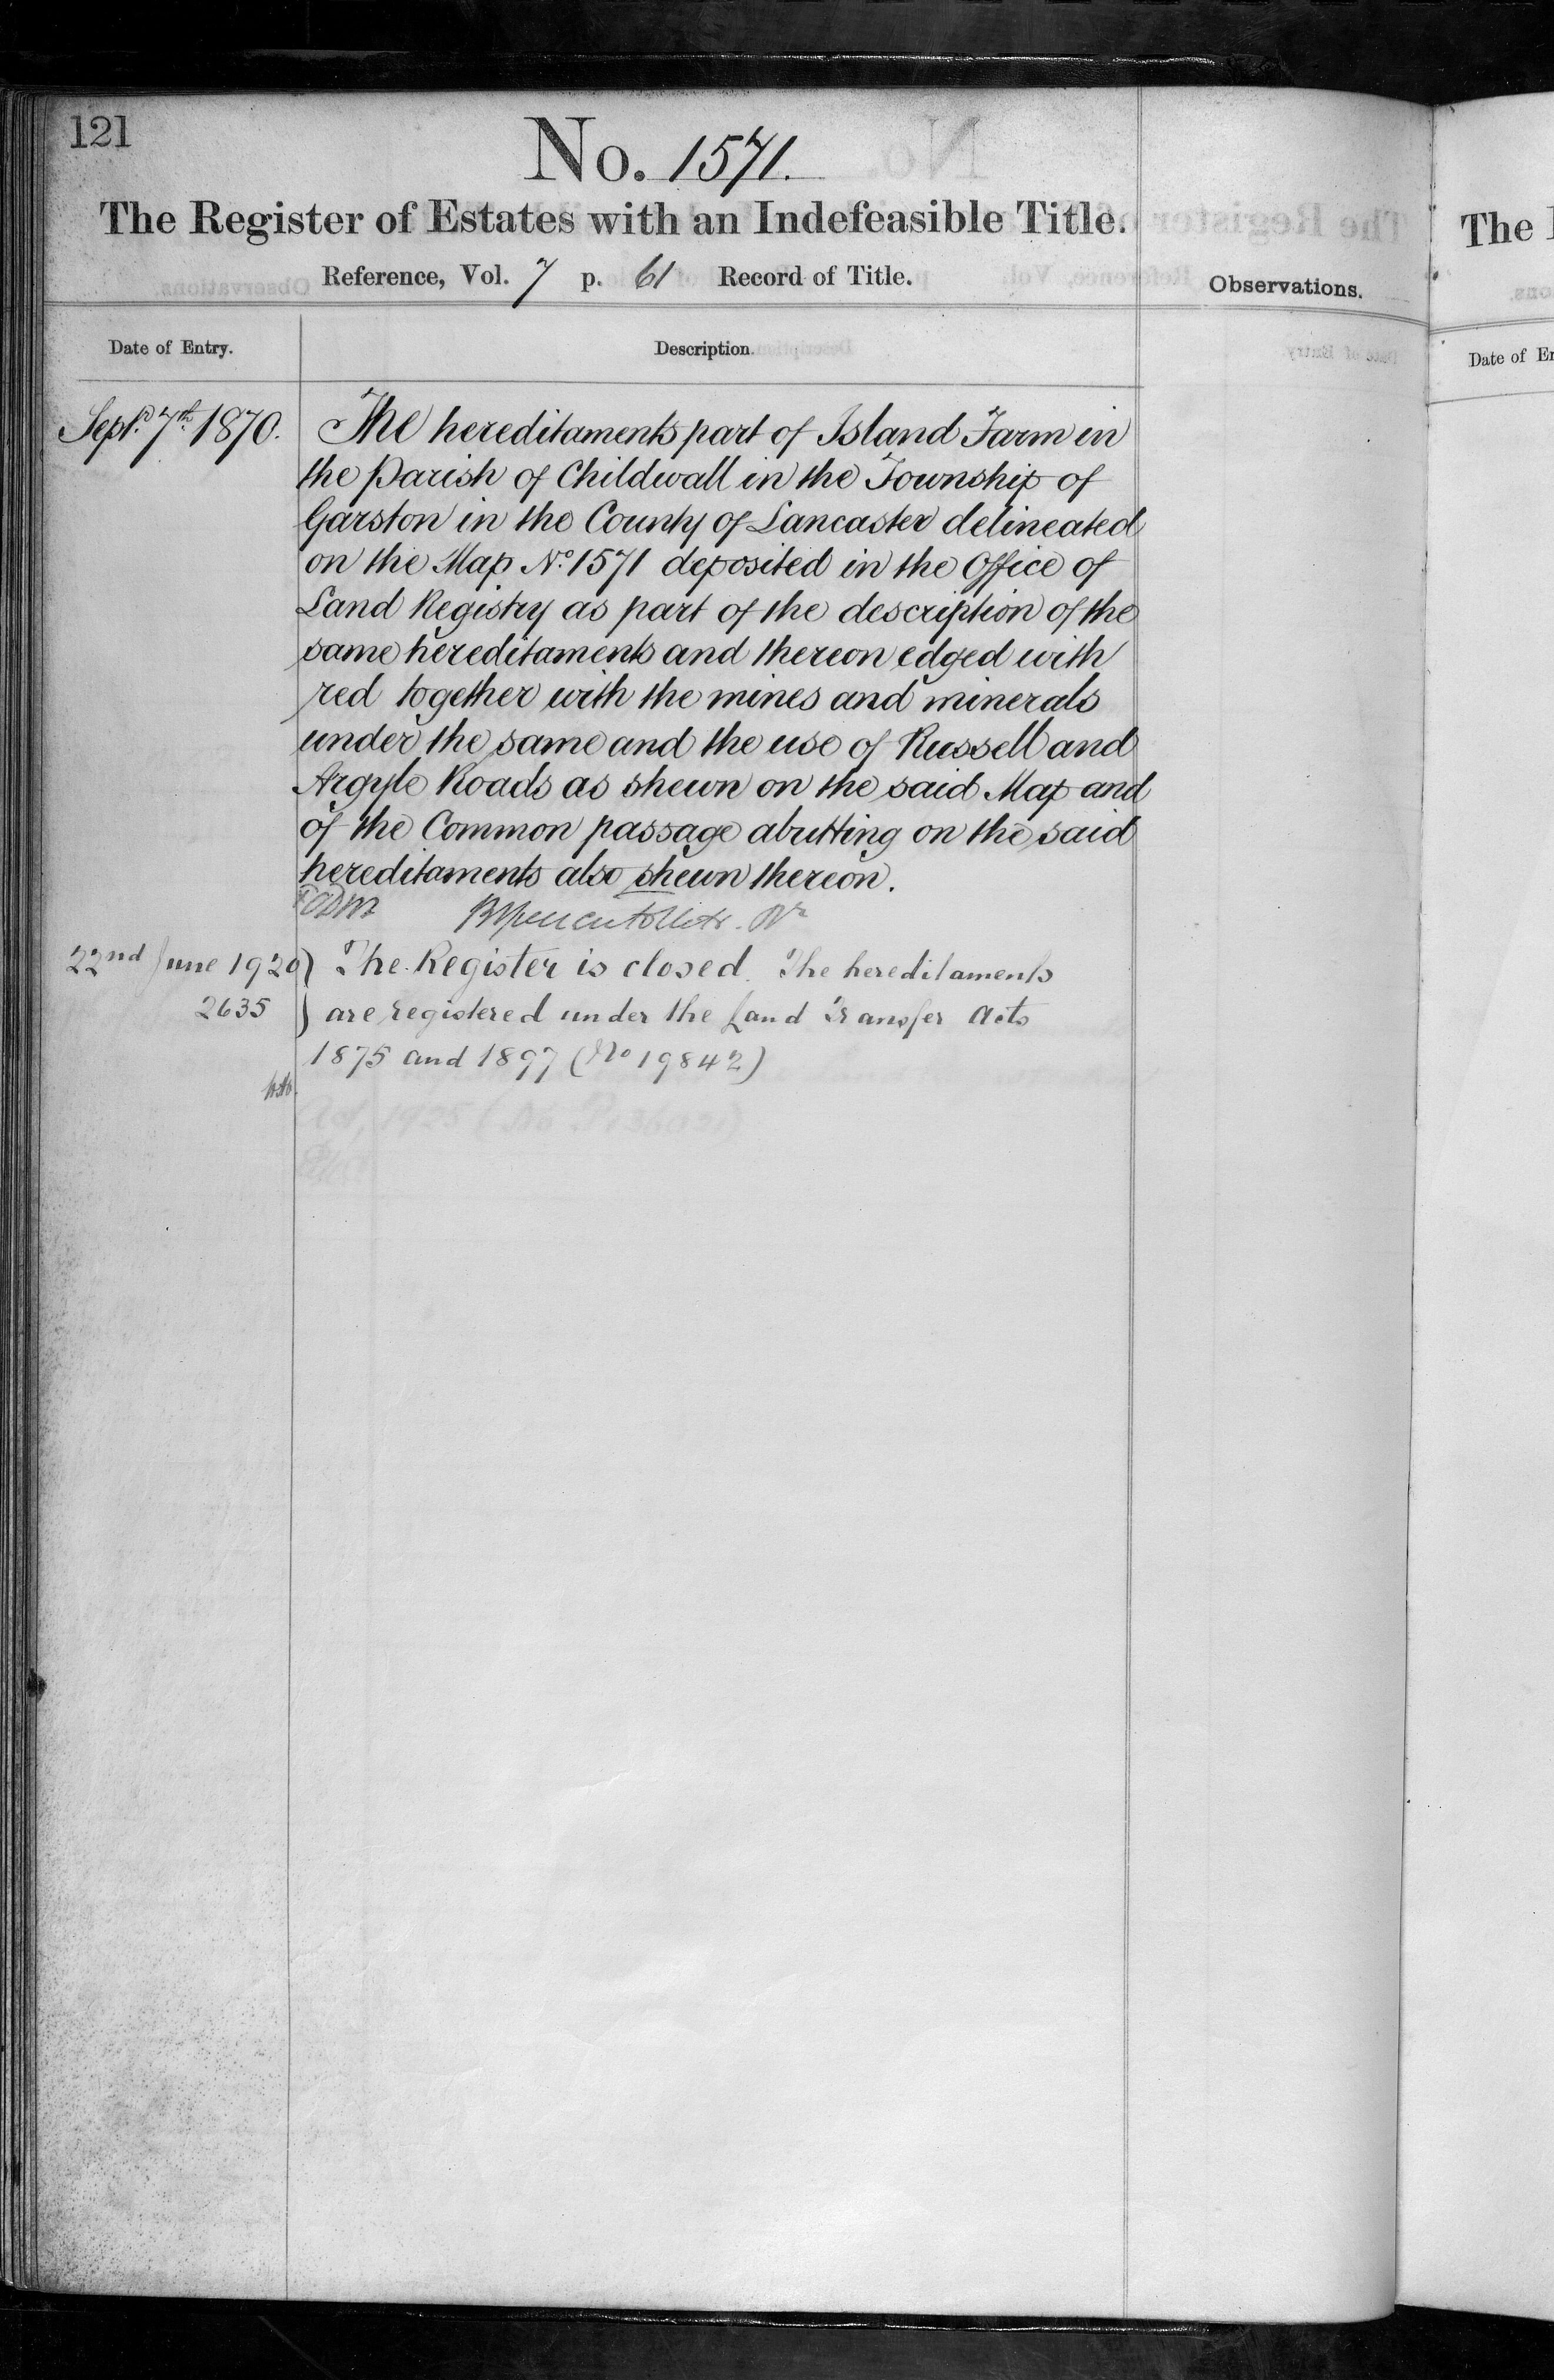 121
No. 1571.
The Register of Estates with an Indefeasible Title.
Reference, Vol. 7 p. 61 Record of Title.
Observations.
Date of Entry.
Description.
Septr. 7th. 1870.
The hereditaments part of Island Farm in
the Parish of Childwall in the Township of
Garston in the County of Lancaster delineated
on the Map No. 1571 deposited in the Office of
Land Registry as part of the description of the
same hereditaments and thereon edged with
red together with the mines and minerals
under the same and the use of Russell and
Argyle Roads as shewn on the said Map and
of the Common passage abutting on the said
hereditaments also shewn thereon.
22nd June 1920
2635
The Register is closed. The hereditaments
are registered under the Land Transfer Acts
1875 and 1897 (No 19842)
The
Date of